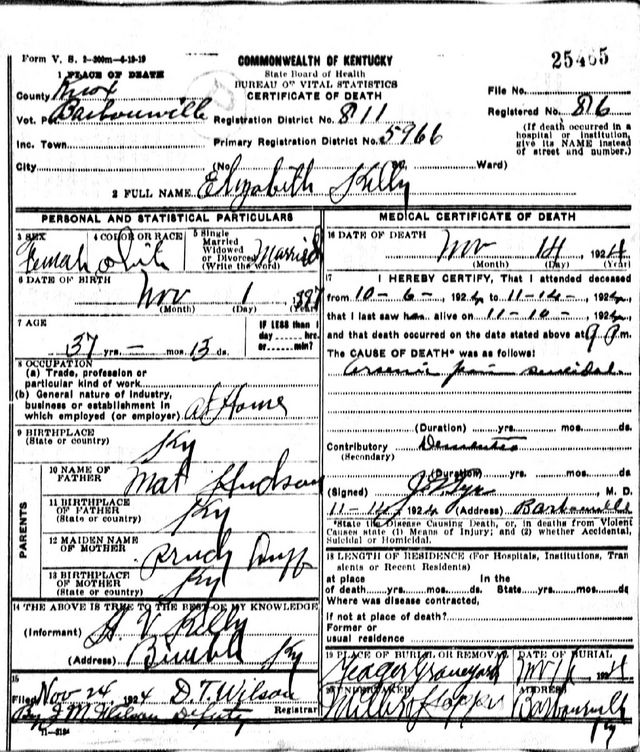 Form V. S. 2-300m-6-19-19
COMMONWEALTH OF KENTUCKY
State Board of Health
BUREAU OF VITAL STATISTICS
CERTIFICATE OF DEATH
25465
1 PLACE OF DEATH
County Knox
File No.
Vot. P Barbourville
Registration District No. 811
Registered No. 86
Inc. Town
Primary Registration District No. 5966
(If death occurred in a hospital or institution, give its NAME instead of street and number.)
City (No. Ward)
2 FULL NAME Elizabeth Kelly
PERSONAL AND STATISTICAL PARTICULARS
3 SEX Female
4 COLOR OR RACE White
5 Single Married Widowed or Divorced (Write the word) Married
6 DATE OF BIRTH
Nov 1
(Month) (Day) (Year)
7 AGE
37 yrs. - mos. 13 ds.
IF LESS than 1 day ___ hrs. or ___ min?
8 OCCUPATION
(a) Trade, profession or particular kind of work
(b) General nature of industry, business or establishment in which employed (or employer) at Home
9 BIRTHPLACE
(State or country) Ky
PARENTS
10 NAME OF FATHER Mat Hudson
11 BIRTHPLACE OF FATHER
(State or country) Ky
12 MAIDEN NAME OF MOTHER
13 BIRTHPLACE OF MOTHER
(State or country) Ky
14 THE ABOVE IS TRUE TO THE BEST OF MY KNOWLEDGE
(Informant) Kelly
(Address) Bimble Ky
15
Filed Nov 24, 1924 D. T. Wilson
Registrar
By J M Wilson Deputy
11-3184
MEDICAL CERTIFICATE OF DEATH
16 DATE OF DEATH
Nov 14, 1924
(Month) (Day) (Year)
17 I HEREBY CERTIFY, That I attended deceased
from 10-6-, 1924, to 11-14-, 1924,
that I last saw h alive on 11-10-, 1924,
and that death occurred on the date stated above at 9 P m.
The CAUSE OF DEATH* was as follows:
suicidal.
(Duration) yrs. mos. ds.
Contributory Dementia
(Secondary)
(Duration) yrs. mos. ds.
(Signed) M. D.
11-14, 1924 (Address) Barbourville
*State the Disease Causing Death, or, in deaths from Violent Causes state (1) Means of Injury; and (2) whether Accidental, Suicidal or Homicidal.
18 LENGTH OF RESIDENCE (For Hospitals, Institutions, Transients or Recent Residents)
at place of death yrs. mos. ds. In the State yrs. mos. ds.
Where was disease contracted,
if not at place of death?
Former or usual residence
19 PLACE OF BURIAL OR REMOVAL
Yeager Graveyard
DATE OF BURIAL
Nov 16, 1924
20 UNDERTAKER
ADDRESS
Barbourville
Ky